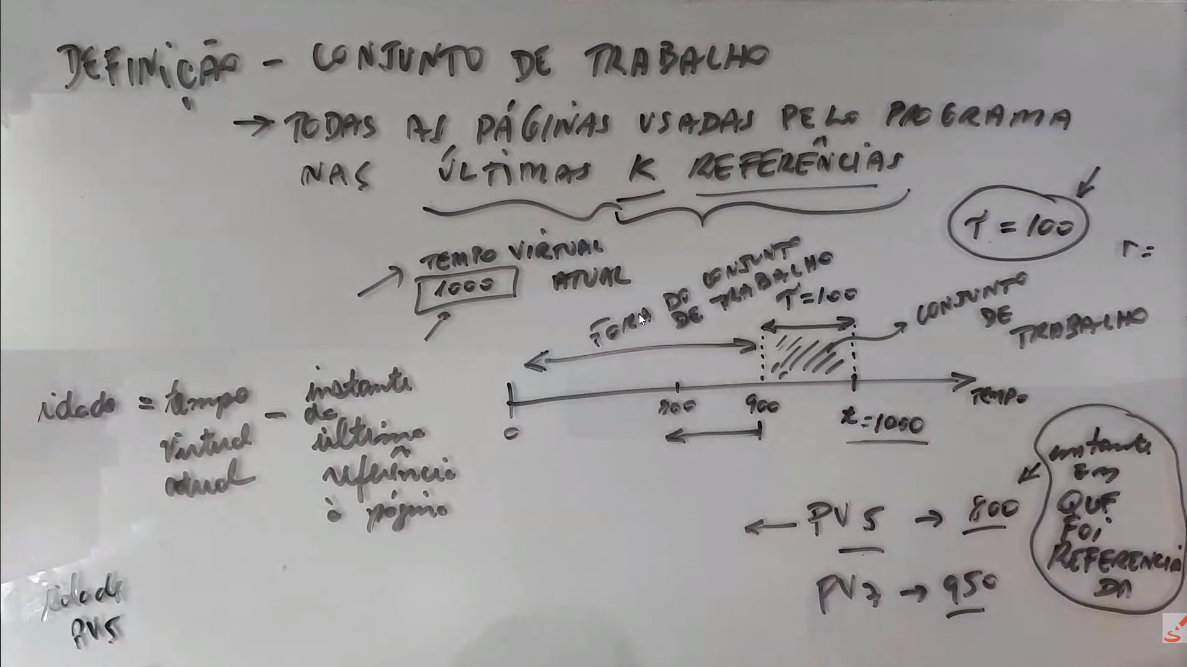 DEFINIÇÃO - CONJUNTO DE TRABALHO
→ TODAS AS PÁGINAS USADAS PELO PROGRAMA
NAS ÚLTIMAS K REFERÊNCIAS
TEMPO VIRTUAL
ATUAL
1000
τ = 100
τ =
FORA DO CONJUNTO
DE TRABALHO
τ = 100
CONJUNTO
DE
TRABALHO
0
800
900
t = 1000
TEMPO
idade = tempo
virtual
atual
- instante
da
última
referência
à página
← PV5 → 800
PV3 → 950
instante
EM
QUE
FOI
REFERENCIA
DA
idade
PV5